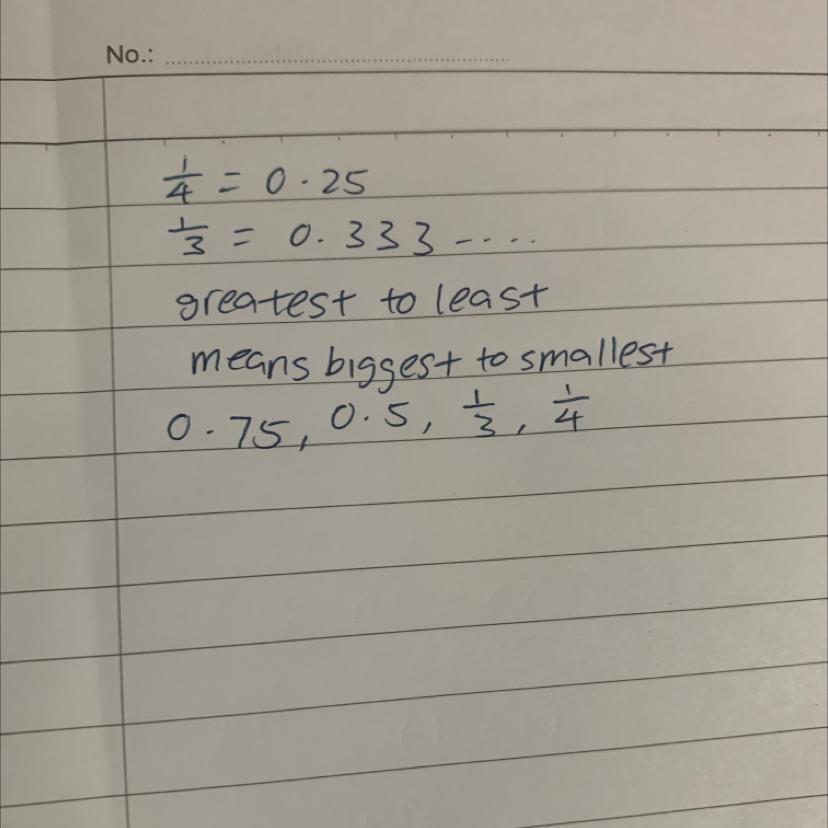 No.: ........................................................
1/4 = 0.25
1/3 = 0.333-....
greatest to least
means biggest to smallest
0.75, 0.5, 1/3, 1/4